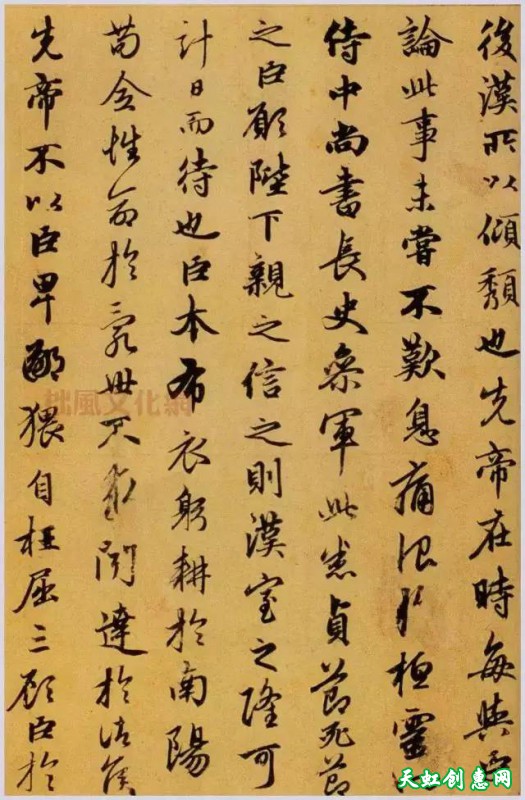 後漢所以傾頹也先帝在時每與臣
論此事未嘗不歎息痛恨於桓靈也
侍中尚書長史參軍此悉貞節死節
之臣願陛下親之信之則漢室之隆可
計日而待也臣本布衣躬耕於南陽
苟全性命於亂世不求聞達於諸侯
先帝不以臣卑鄙猥自枉屈三顧臣於
拙風文化網
天虹创意网